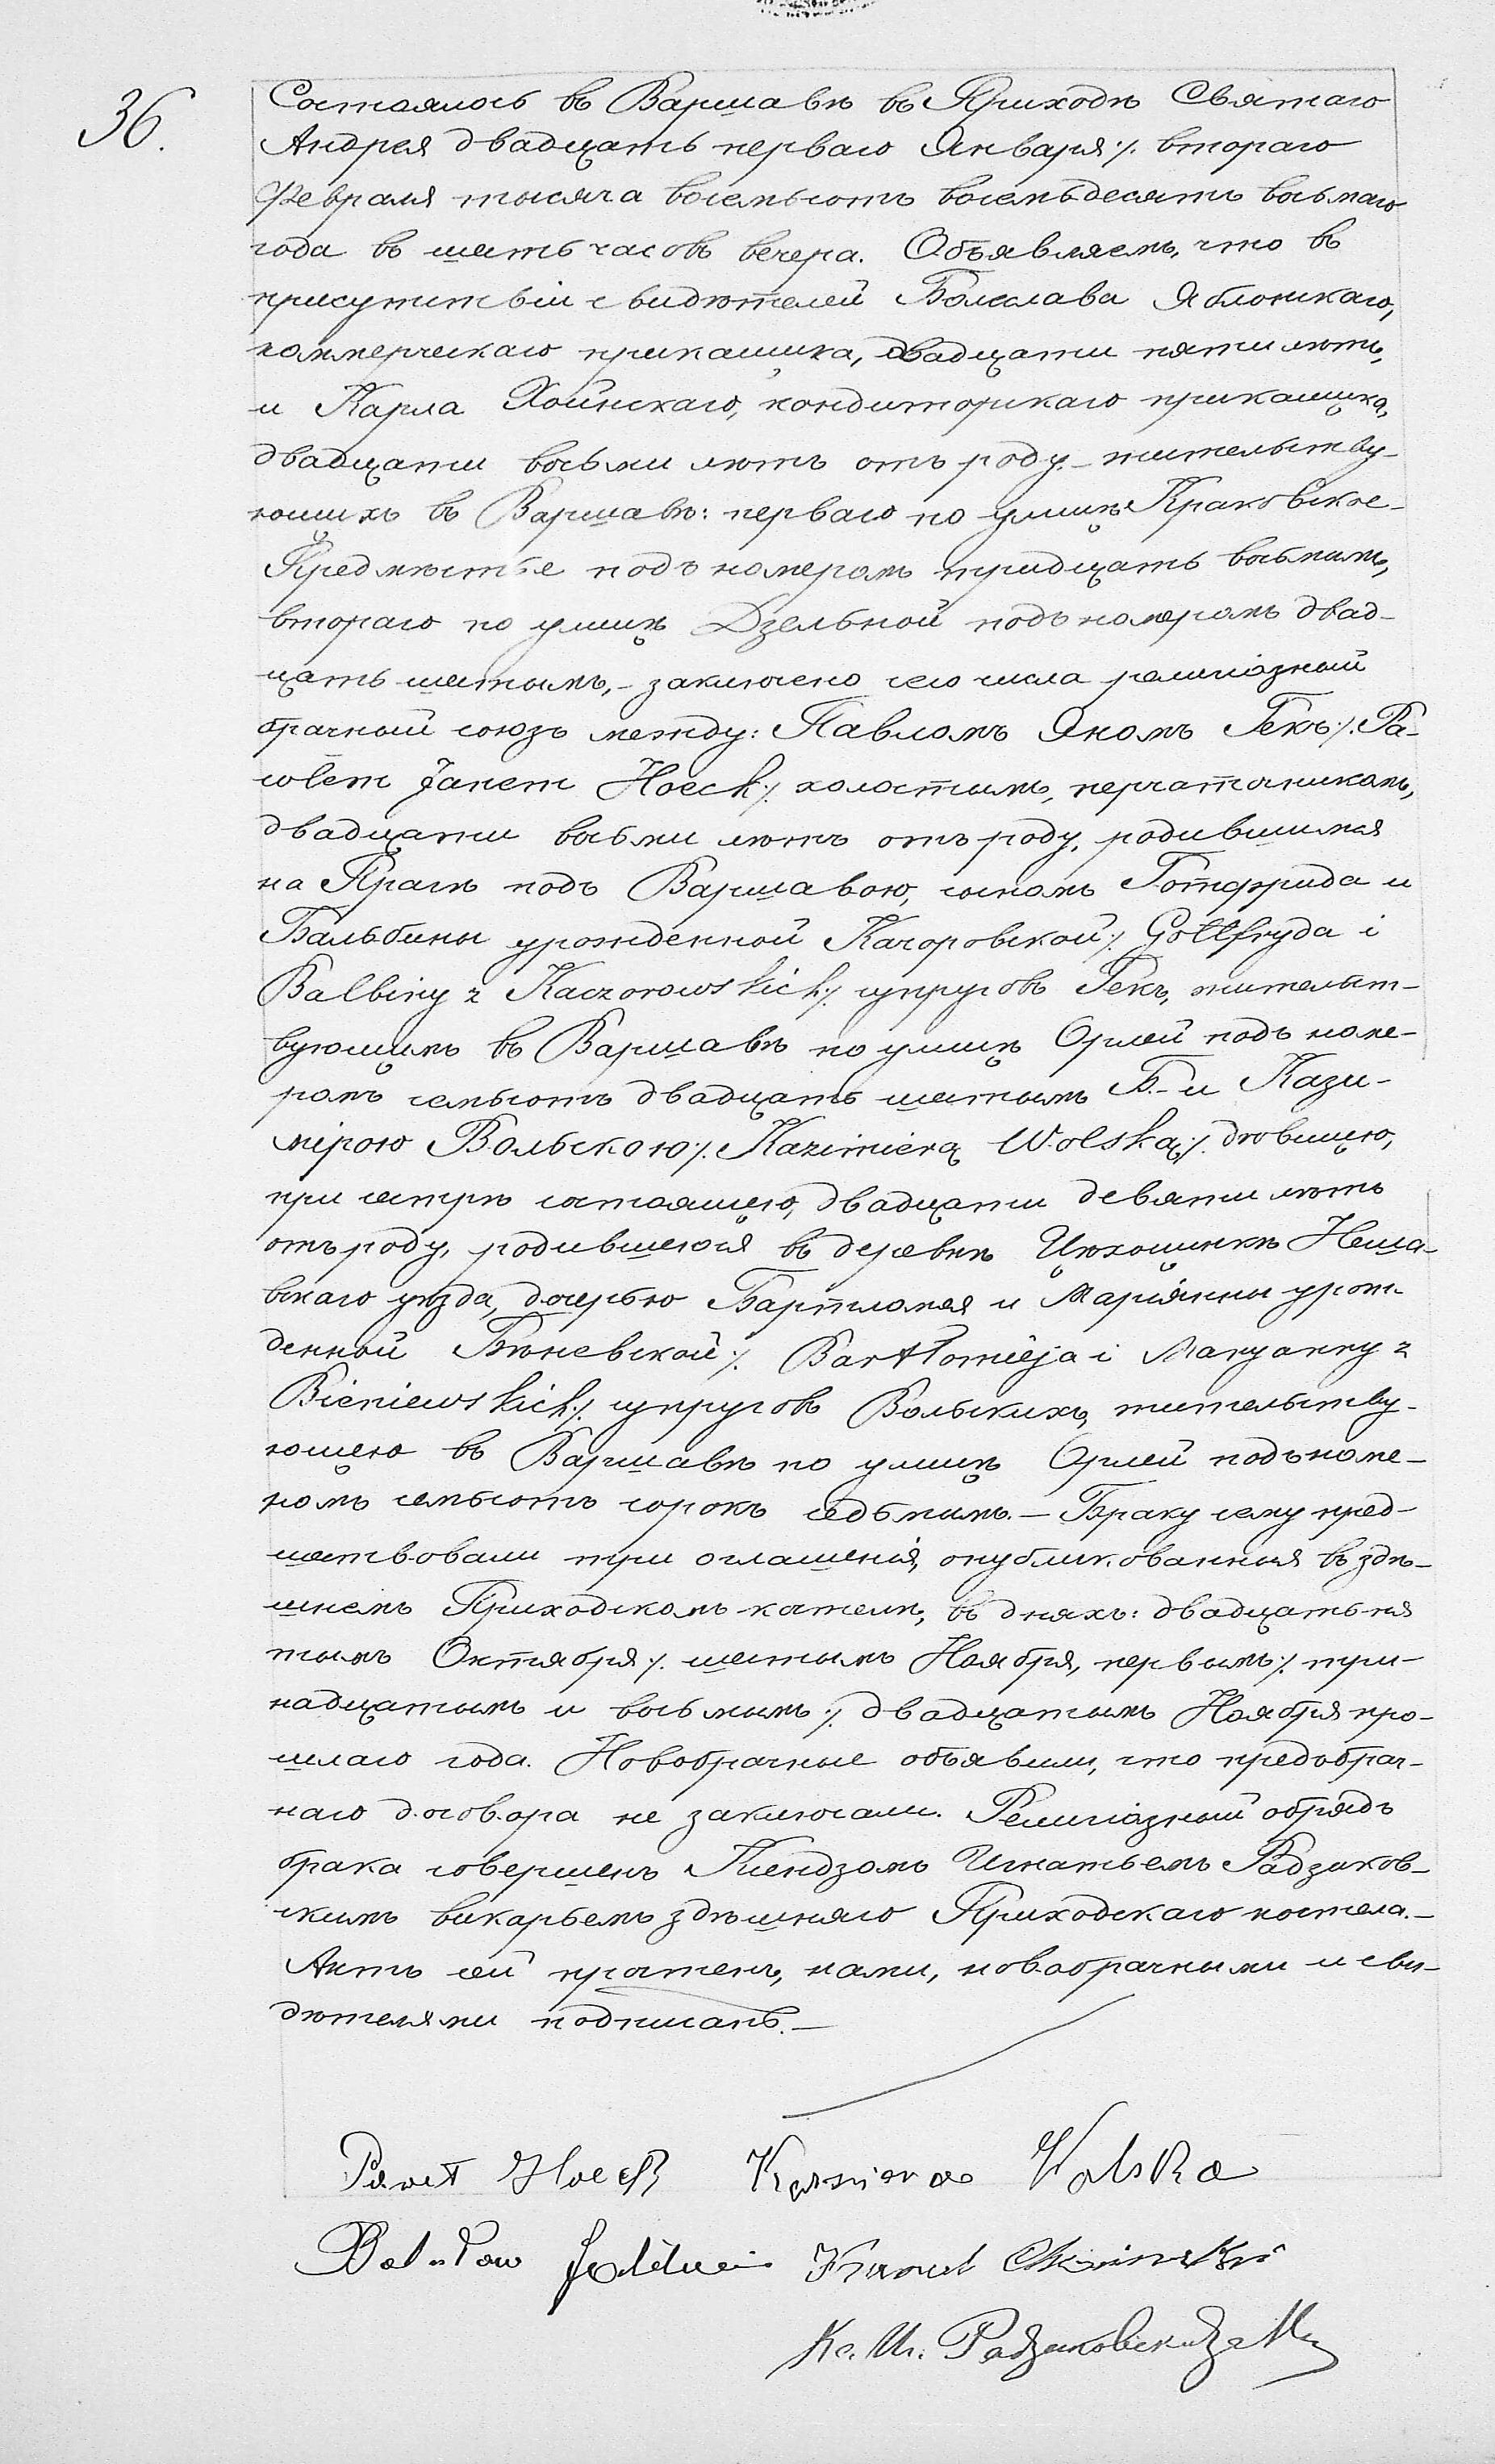 36.
Состоялось въ Варшавѣ въ Приходѣ Святаго
Андрея двадцать перваго Января ./. втораго
Февраля тысяча восемьсотъ восемьдесятъ восьмаго
года въ шесть часовъ вечера. Объявляемъ, что въ
присутствіи свидѣтелей Болеслава Яблонскаго,
коммерческаго прикащика, двадцати пяти лѣтъ,
и Карла Хоинскаго, кондиторскаго прикащика,
двадцати восьми лѣтъ отъ роду,- жительству-
ющихъ въ Варшавѣ: перваго по улицѣ Краковское-
Предмѣстье подъ номеромъ тридцать восьмымъ,
втораго по улицѣ Дзельной подъ номеромъ двад-
цать шестымъ,- заключено сего числа религіозный
брачный союзъ между: Павломъ Яномъ Гекъ ./. Pa-
wlem Janem Hoeck ./. холостымъ, перчаточникомъ,
двадцати восьми лѣтъ отъ роду, родившимся
на Прагѣ подъ Варшавою, сыномъ Готфрида и
Бальбины урожденной Качоровской ./. Gottfryda i
Balbiny z Kaczorowskich ./. супруговъ Гекъ, жительст-
вующимъ въ Варшавѣ по улицѣ Орлей подъ номе-
ромъ семьсотъ двадцать шестымъ Б.- и Кази-
мірою Вольскою ./. Kazimierą Wolską ./. дѣвицею,
при сестрѣ состоящею, двадцати девяти лѣтъ
отъ роду, родившеюся въ деревнѣ Цѣхоцинкѣ Неша-
вскаго уѣзда, дочерью Бартломея и Маріянны урож-
денной Бѣневской ./. Bartłomieja i Maryanny z
Bieniewskich ./. супруговъ Вольскихъ, жительству-
ющею въ Варшавѣ по улицѣ Орлей подъ номе-
ромъ семьсотъ сорокъ седьмымъ.- Браку сему пред-
шествовали три оглашенія, опубликованныя въ здѣ-
шнемъ Приходскомъ костелѣ, въ дняхъ: двадцать пя
тымъ Октября ./. шестымъ Ноября, первымъ ./. три-
надцатымъ и восьмымъ ./. двадцатымъ Ноября про-
шлаго года. Новобрачные объявили, что предбрач-
наго договора не заключали. Религіозный обрядъ
брака совершенъ Ксендзомъ Игнатьемъ Радзиков-
скимъ викарьемъ здѣшняго Приходскаго костела.-
Актъ сей прочтенъ, нами, новобрачными и сви-
дѣтелями подписанъ.-
Paweł Hoeck Kazimiera Wolska
Bolesław Karol Choiński
Кс. Иг. Радзиковскій